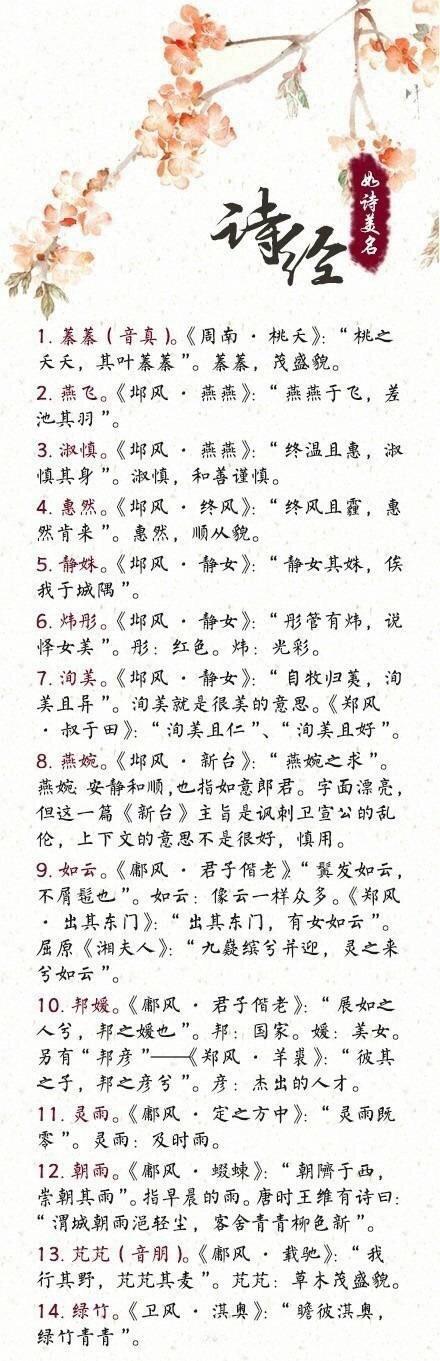 诗经
如诗美名
1. 蓁蓁（音真）。《周南·桃夭》：“桃之
夭夭，其叶蓁蓁”。蓁蓁，茂盛貌。
2. 燕飞。《邶风·燕燕》：“燕燕于飞，差
池其羽”。
3. 淑慎。《邶风·燕燕》：“终温且惠，淑
慎其身”。淑慎，和善谨慎。
4. 惠然。《邶风·终风》：“终风且霾，惠
然肯来”。惠然，顺从貌。
5. 静姝。《邶风·静女》：“静女其姝，俟
我于城隅”。
6. 炜彤。《邶风·静女》：“彤管有炜，说
怿女美”。彤：红色。炜：光彩。
7. 洵美。《邶风·静女》：“自牧归荑，洵
美且异”。洵美就是很美的意思。《郑风
·叔于田》：“洵美且仁”、“洵美且好”。
8. 燕婉。《邶风·新台》：“燕婉之求”。
燕婉：安静和顺，也指如意郎君。字面漂亮，
但这一篇《新台》主旨是讽刺卫宣公的乱
伦，上下文的意思不是很好，慎用。
9. 如云。《鄘风·君子偕老》“鬒发如云，
不屑髢也”。如云：像云一样众多。《郑风
·出其东门》：“出其东门，有女如云”。
屈原《湘夫人》：“九嶷缤兮并迎，灵之来
兮如云”。
10. 邦媛。《鄘风·君子偕老》：“展如之
人兮，邦之媛也”。邦：国家。媛：美女。
另有“邦彦”——《郑风·羊裘》：“彼其
之子，邦之彦兮”。彦：杰出的人才。
11. 灵雨。《鄘风·定之方中》：“灵雨既
零”。灵雨：及时雨。
12. 朝雨。《鄘风·蝃蝀》：“朝隮于西，
崇朝其雨”。指早晨的雨。唐时王维有诗曰：
“渭城朝雨浥轻尘，客舍青青柳色新”。
13. 芃芃（音朋）。《鄘风·载驰》：“我
行其野，芃芃其麦”。芃芃：草木茂盛貌。
14. 绿竹。《卫风·淇奥》：“瞻彼淇奥，
绿竹青青”。